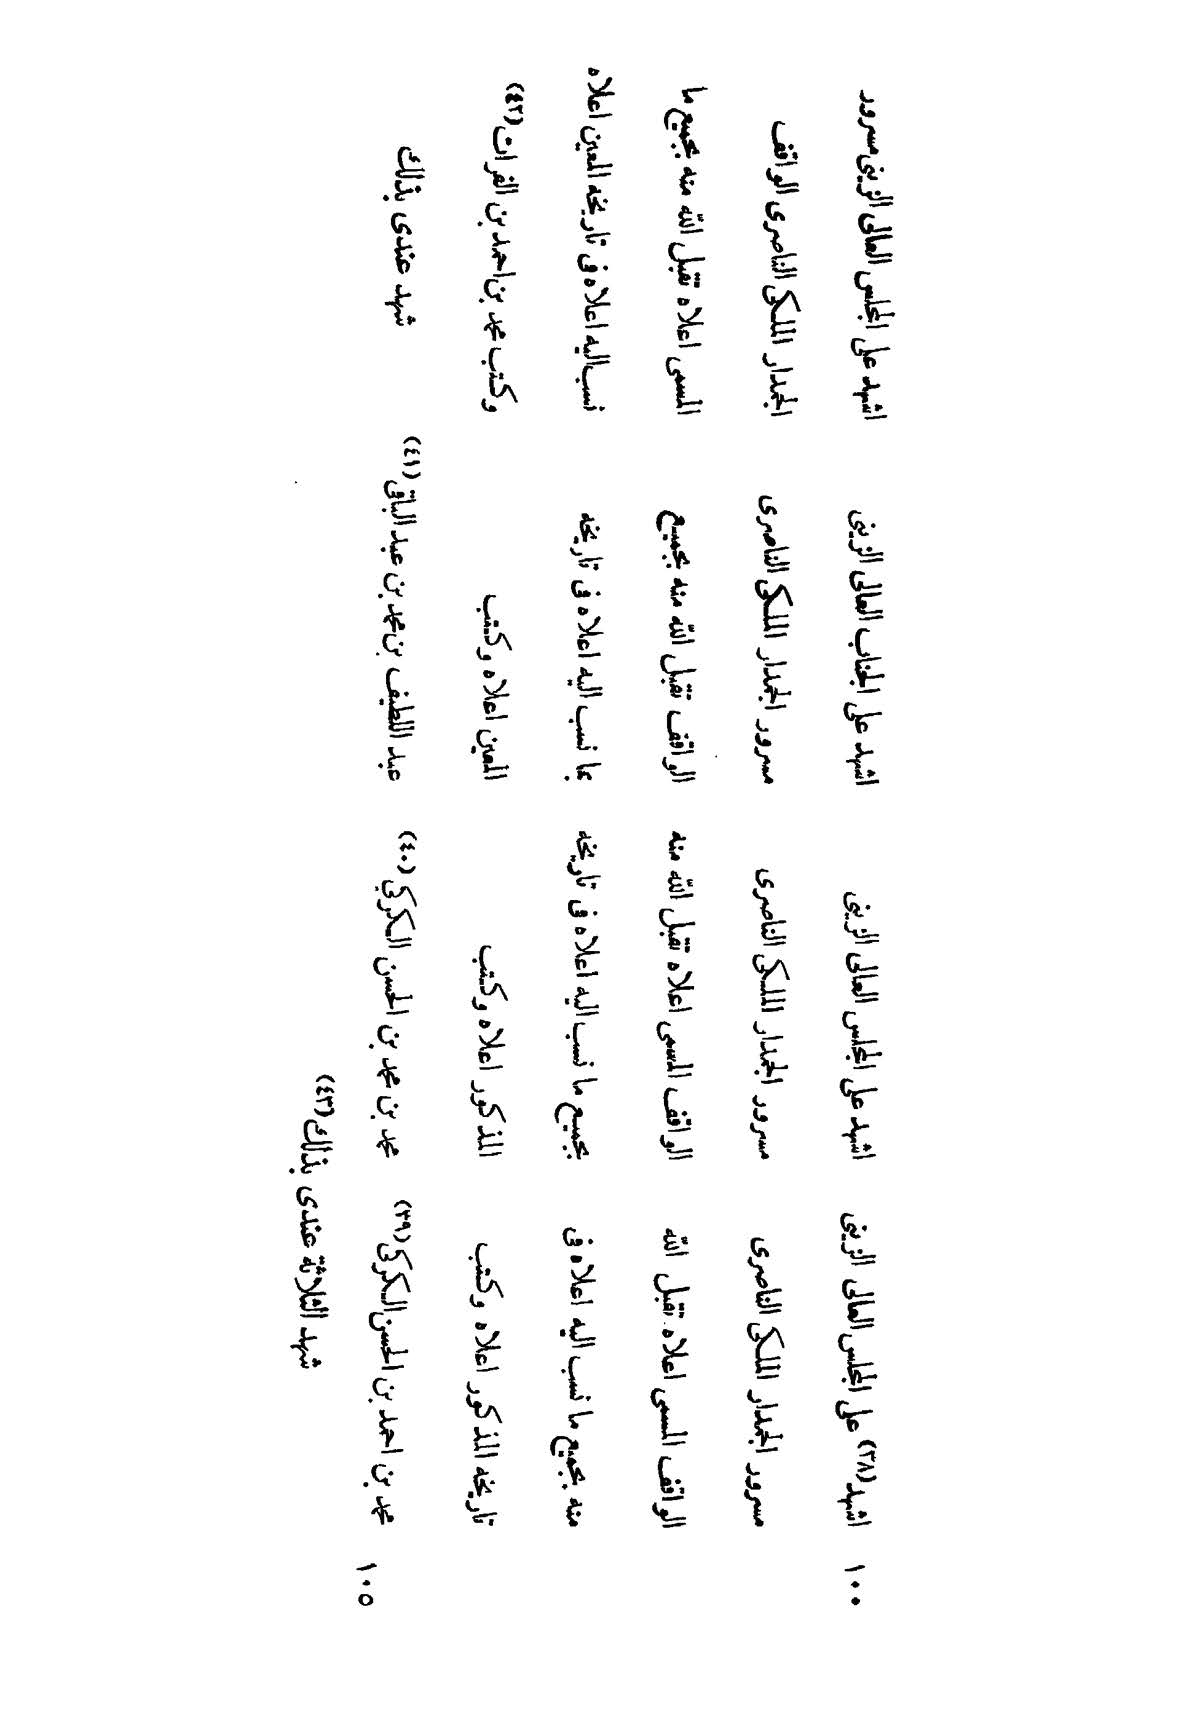 ١٠٠ اشهد(٣٨) على المجلس العالى الزينى
مسرور الجمدار الملكى الناصرى
الواقف المسمى اعلاه تقبل الله
منه بجميع ما نسب اليه اعلاه فى
تاريخه المذكور اعلاه وكتب
١٠٥ محمد بن احمد بن الحسن الكركى(٣٩)
اشهد على المجلس العالى الزينى
مسرور الجمدار الملكى الناصرى
الواقف المسمى اعلاه تقبل الله منه
بجميع ما نسب اليه اعلاه فى تاريخه
المذكور اعلاه وكتب
محمد بن محمد بن الحسن الكركي(٤٠)
اشهد على الجناب العالى الزينى
مسرور الجمدار الملكى الناصرى
الواقف تقبل الله منه بجميع
بما نسب اليه اعلاه فى تاريخه
المعين اعلاه وكتب
عبد اللطيف بن محمد بن عبد الباقى(٤١)
اشهد على المجلس العالى الزينى مسرور
الجمدار الملكى الناصرى الواقف
المسمى اعلاه تقبل الله منه بجميع ما
نسب اليه اعلاه فى تاريخه المعين اعلاه
وكتب محمد بن احمد بن الفرات(٤٢)
شهد عندى بذلك
شهد الثلاثة عندى بذلك(٤٣)